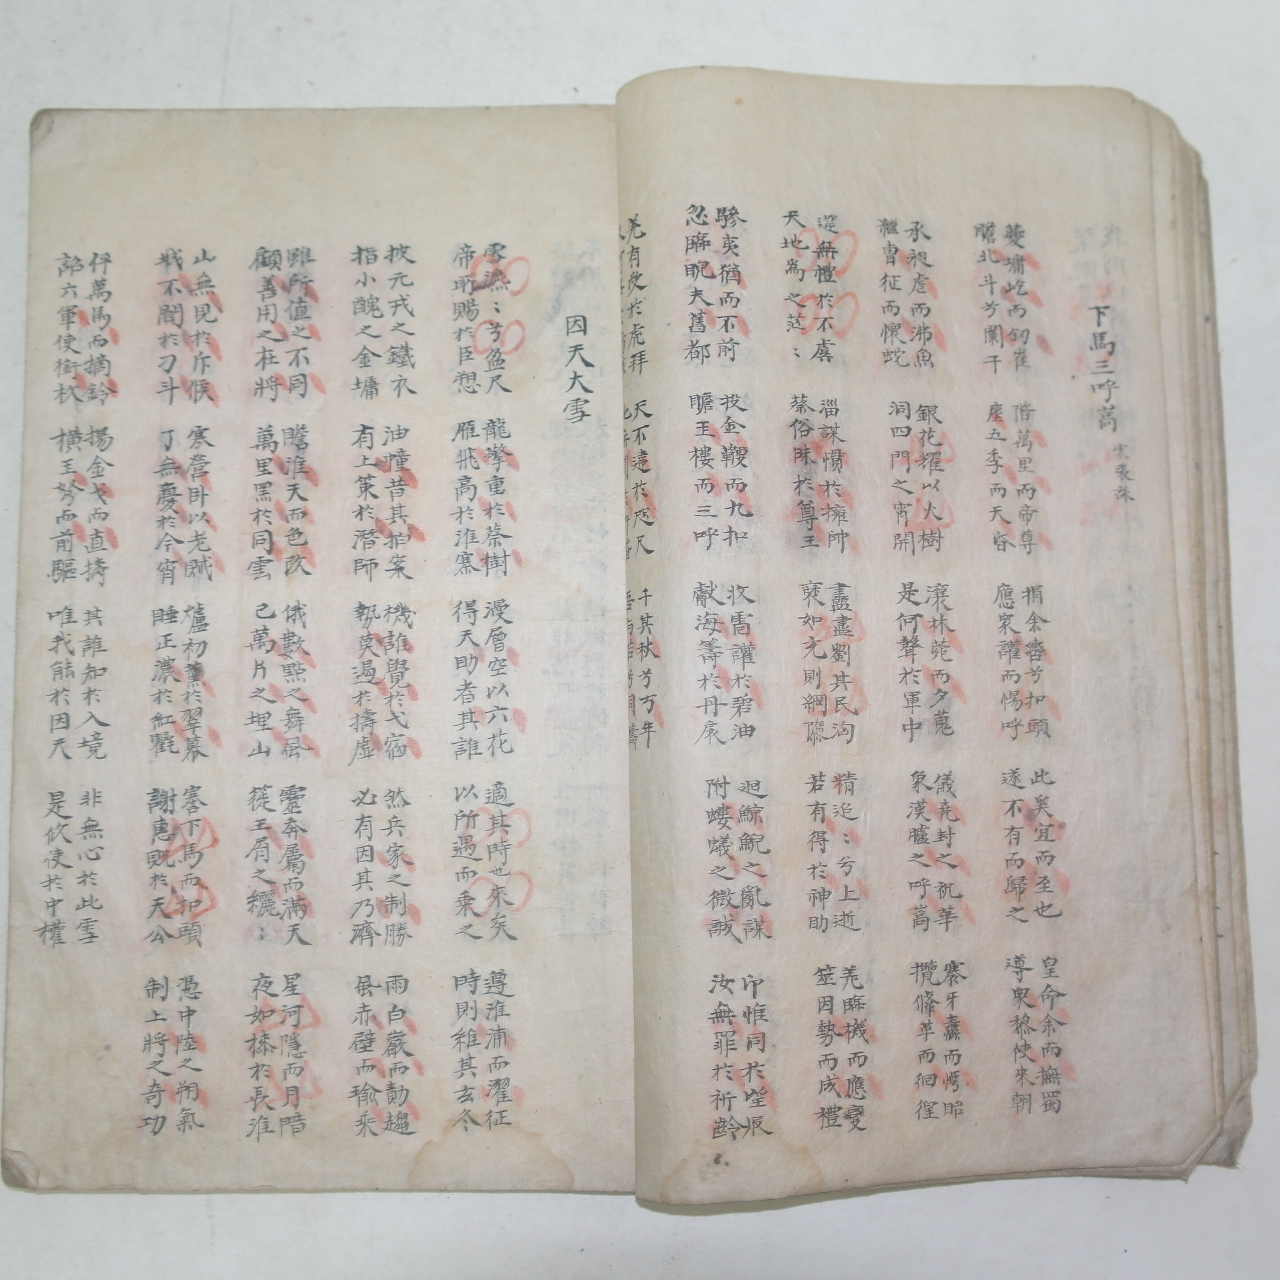 下馬三呼嵩 宋張詠
墉屹而釰崔
瞻北斗兮闌干
階萬里而帝尊
塵五季而天昏
捐余畨兮扣頭
應衆讙而惕呼
此奚宜而至也
遂不有而歸之
皇命余而撫蜀
導衆穆使來朝
承祲虐而沸魚
繼曹征而懷蛇
銀花耀以火樹
洞四門之宵開
滾林莞而夕蒐
是何聲於軍中
儀堯封之祝華
象漢臚之呼嵩
褰牙纛而愕眙
攬鞗革而徊徨
逞無禮於不虞
天地為之茫〻
淄謀慣於擁帥
蔡俗昧於尊王
劉其民
褎如充則綱隳
精迫〻兮上逝
若有得於神助
羌臨機而應變
筮因勢而成禮
驂夷猶而不前
忽臨睨夫舊都
投金鞭而九扣
瞻玉樓而三呼
收雷讙於碧油
獻海籌於丹扆
迴鯨鯢之亂謀
附螻蟻之微誠
印惟同於望辰
汝無罪於祈齡
羌有於虎拜
天不遠於咫尺
千其秋兮万年
因天大雪
雪漉〻兮盈尺
帝所賜於臣愬
龍拏重於蔡樹
雁飛高於淮寨
漫層空以六花
得天助者其誰
適其時也來矣
以所遇而乘之
遵淮浦而濯征
時則維其玄冬
披元戎之鐵衣
指小醜之金墉
油幢昔其拍案
有上策於潛師
機誰覺於弋宿
勢莫過於擣虛
然兵家之制勝
必有因其乃濟
雨白巖而勣趨
風赤壁而瑜乘
雖所值之不同
顧善用之在將
瞻淮天而色改
萬里黑於同雲
俄數點之舞風
已萬片之埋山
靈奔屬而滿天
蓰玉屑之纚〻
星河隱而月暗
夜如漆於長淮
山無見於斥候
城不聞於刁斗
寒營卧以老賊
丁無慶於今宵
爐初薰於翠幕
睡正濃於紅氍
蹇下馬而扣頭
謝惠貺於天公
憑中陸之朔氣
制上將之奇功
伻萬馬而摘鈴
詔六軍使銜枚
揚金戈而直擣
橫玉弩而前驅
其誰知於入境
唯我能於因天
非無心於此雪
是攸使於中權